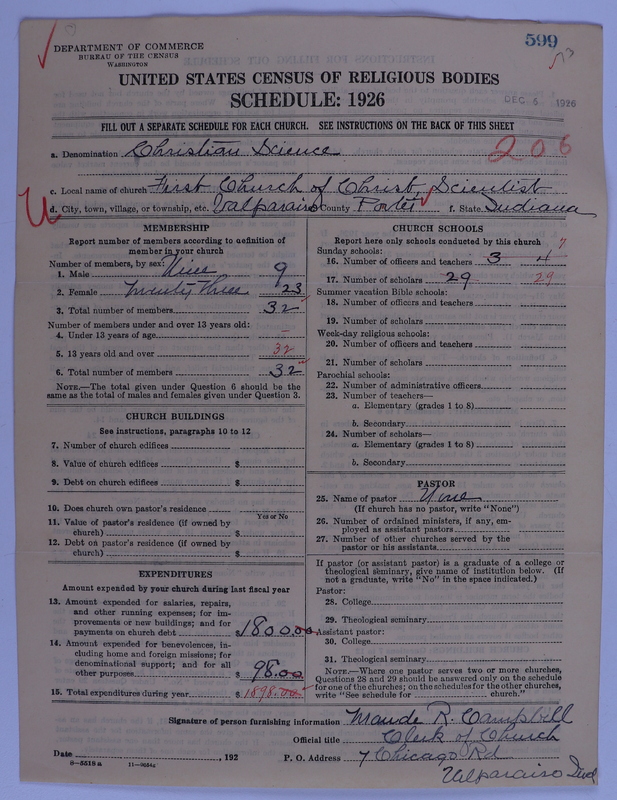 599
73
DEPARTMENT OF COMMERCE
BUREAU OF THE CENSUS
WASHINGTON
UNITED STATES CENSUS OF RELIGIOUS BODIES
SCHEDULE: 1926
DEC 6 1926
FILL OUT A SEPARATE SCHEDULE FOR EACH CHURCH. SEE INSTRUCTIONS ON THE BACK OF THIS SHEET
a. Denomination Christian Science
206
c. Local name of church First Church of Christ, Scientist
d. City, town, village, or township, etc. Valparaiso County Porter f. State Indiana
MEMBERSHIP
Report number of members according to definition of
member in your church
Number of members, by sex:
1. Male Nine 9
2. Female Twenty Three 23
3. Total number of members 32
Number of members under and over 13 years old:
4. Under 13 years of age –
5. 13 years old and over 32
6. Total number of members 32
NOTE.—The total given under Question 6 should be
the same as the total of males and females given under Question 3.
CHURCH BUILDINGS
See instructions, paragraphs 10 to 12
7. Number of church edifices
8. Value of church edifices $
9. Debt on church edifices $
10. Does church own pastor's residence
Yes or No
11. Value of pastor's residence (if owned by
church) $
12. Debt on pastor's residence (if owned by
church) $
EXPENDITURES
Amount expended by your church during last fiscal year
13. Amount expended for salaries, repairs,
and other running expenses; for im-
provements or new buildings; and for
payments on church debt $1800.00
14. Amount expended for benevolences, in-
cluding home and foreign missions; for
denominational support; and for all
other purposes $98.00
15. Total expenditures during year $1898.00
CHURCH SCHOOLS
Report here only schools conducted by this church
Sunday schools:
7
16. Number of officers and teachers 3 4
17. Number of scholars 29 29
Summer vacation Bible schools:
18. Number of officers and teachers
19. Number of scholars
Week-day religious schools:
20. Number of officers and teachers
21. Number of scholars
Parochial schools:
22. Number of administrative officers
23. Number of teachers—
a. Elementary (grades 1 to 8)
b. Secondary
24. Number of scholars—
a. Elementary (grades 1 to 8)
b. Secondary
PASTOR
25. Name of pastor None
(If church has no pastor, write "None")
26. Number of ordained ministers, if any, em-
ployed as assistant pastors
27. Number of other churches served by the
pastor or his assistants
If pastor (or assistant pastor) is a graduate of a college or
theological seminary, give name of institution below. (If
not a graduate, write "No" in the space indicated.)
Pastor:
28. College
29. Theological seminary
Assistant pastor:
30. College
31. Theological seminary
NOTE.—Where one pastor serves two or more churches,
Questions 28 and 29 should be answered only on the schedule
for one of the churches; on the schedules for the other churches,
write "See schedule for church."
Signature of person furnishing information Maude R. Campbill
Official title Clerk of Church
Date , 192 P. O. Address 7 Chicago Rd
Valparaiso Ind
8—5518a